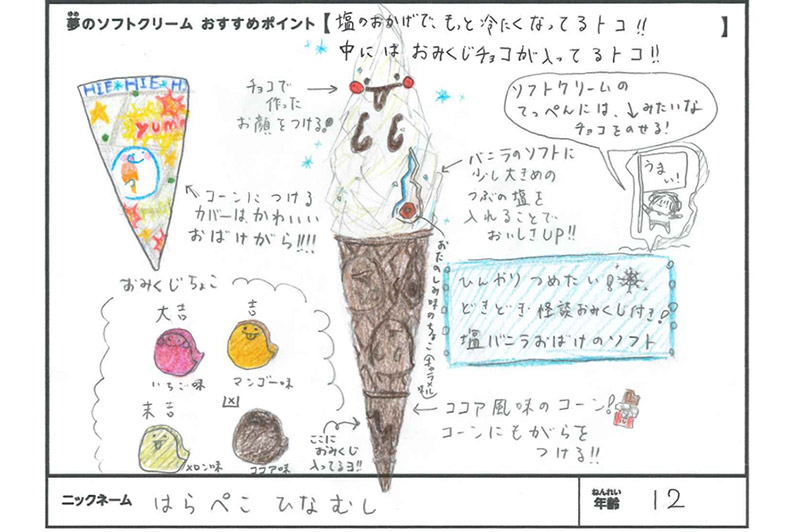 夢のソフトクリーム おすすめポイント【塩のおかげで、もっと冷たくなってるトコ!!】
ゆめ
中には おみくじチョコが入ってるトコ!!
HIE*HIE*H
yumm
チョコで
作った
お顔をつける。
ソフトクリームの
てっぺんには、↓みたいな
チョコをのせる!
うまい!
バニラのソフトに
少し大きめの
つぶの塩を
入れることで
おいしさUP!!
コーンにつける
カバーはかわいい
おばけがら!!!!
おたのしみ味のちょこ(キャラメル味)
ひんやりつめたい
どきどき・怪談おみくじ付き!
塩バニラおばけのソフト
おみくじちょこ
大吉
吉
いちご味
マンゴー味
末吉
凶
メロン味
ココア味
ここに
おみくじ
入ってるヨ!!
ココア風味のコーン!
コーンにもがらを
つける!!
ニックネーム はらぺこ ひなむし
ねんれい
年齢 12